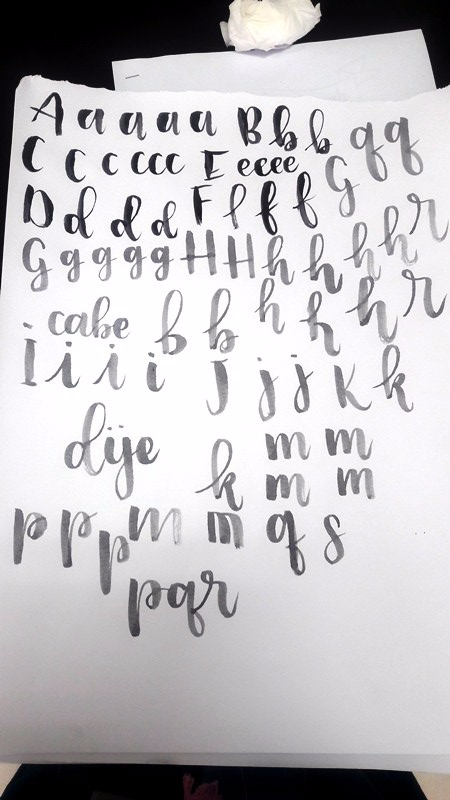 A a a a a B b b q q
C C c c c c E e e e e G
D d d d F f f f r
G g g g g H H h h h h
cabe b b h h h r
I i i i J j j K k
dije k m m
m m
p p p m m q s
pqr